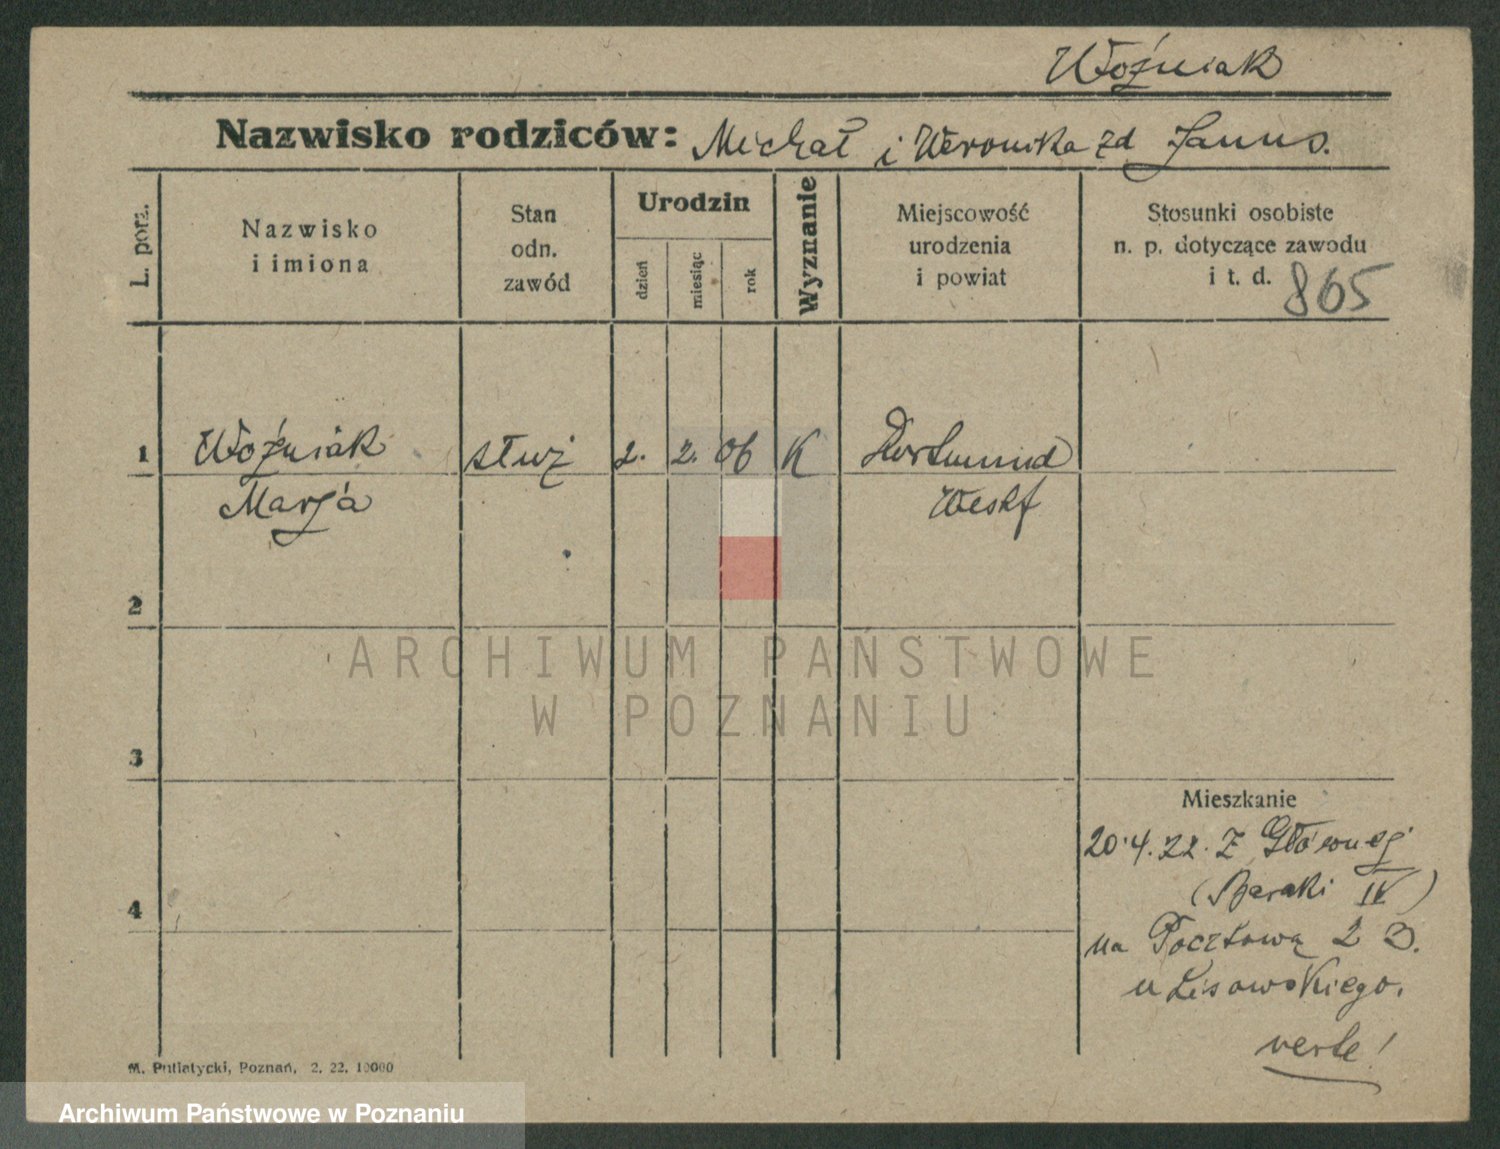 Woźniak
Nazwisko rodziców: Michał i Weronika zd Janus.
L. porz.
Nazwisko
i imiona
Stan
odn.
zawód
Urodzin
dzień
miesiąc
rok
Wyznanie
Miejscowość
urodzenia
i powiat
Stosunki osobiste
n. p. dotyczące zawodu
i t. d.
865
1 Woźniak służ 2. 2. 06 K Dortmund
Marja Westf
2
ARCHIWUM PAŃSTWOWE
W POZNANIU
3
Mieszkanie
20.4.22. Z Głównej
(Baraki IV)
4
na Pocztową 2 B.
u Lisowskiego.
verte!
M. Putiatycki, Poznań, 2. 22. 10000
Archiwum Państwowe w Poznaniu